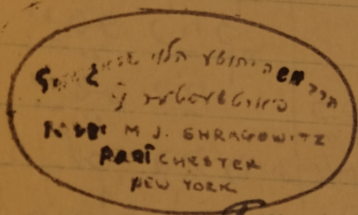 הרב משה יהושע הלוי
פארטשעסטער נ׳
RABBI M J. SHRAGOWITZ
PORT CHESTER
NEW YORK